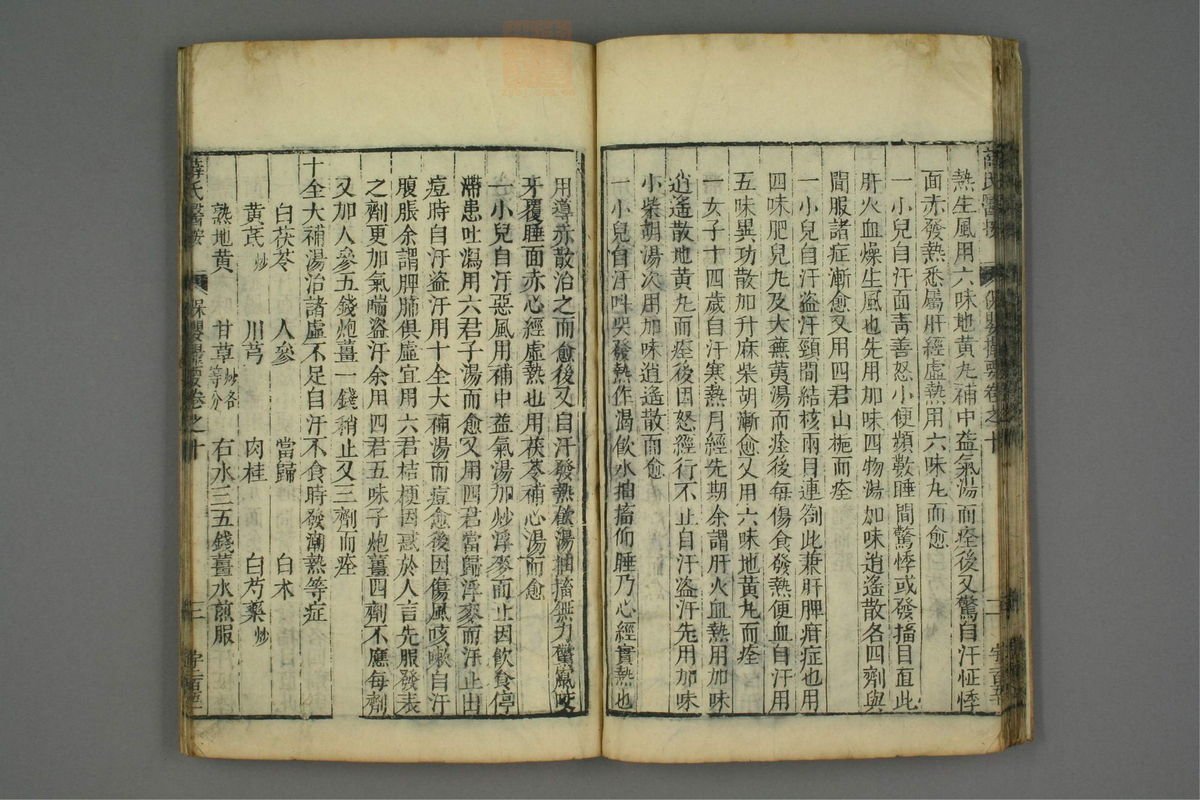 熱生風用六味地黃丸補中益氣湯而痊後又驚自汗怔悸
面赤發熱悉屬肝經虛熱用六味丸而愈
一小兒自汗面青善怒小便頻數睡間驚悸或發搐目直此
肝火血燥生風也先用加味四物湯加味逍遙散各四劑與
間服諸症漸愈又用四君山梔而痊
一小兒自汗盜汗頸間結核兩目連劄此兼肝脾疳症也用
四味肥兒丸及大蕪荑湯而痊後每傷食發熱便血自汗用
五味異功散加升麻柴胡漸愈又用六味地黃丸而痊
一女子十四歲自汗寒熱月經先期余謂肝火血熱用加味
逍遙散地黃丸而痊後因怒經行不止自汗盜汗先用加味
小柴胡湯次用加味逍遙散而愈
一小兒自汗呌哭發熱作渴飲水抽搐仰睡乃心經實熱也
用導赤散治之而愈後又自汗發熱飲湯抽搐無力驚竄咬
牙覆睡面赤心經虛熱也用茯苓補心湯而愈
一小兒自汗惡風用補中益氣湯加炒浮麥而止因飲食停
滯患吐瀉用六君子湯而愈又用四君當歸浮麥而汗止出
痘時自汗盜汗用十全大補湯而痘愈後因傷風咳嗽自汗
腹脹余謂脾肺俱虛宜用六君桔梗因惑於人言先服發表
之劑更加氣喘盜汗余用四君五味子炮薑四劑不應每劑
又加人參五錢炮薑一錢稍止又三劑而痊
十全大補湯治諸虛不足自汗不食時發潮熱等症
白茯苓 人參 當歸 白朮
黃芪炒 川芎 肉桂 白芍藥炒
熟地黃 甘草炒各等分 右水三五錢薑水煎服
薛氏醫按 保嬰撮要卷之十 三